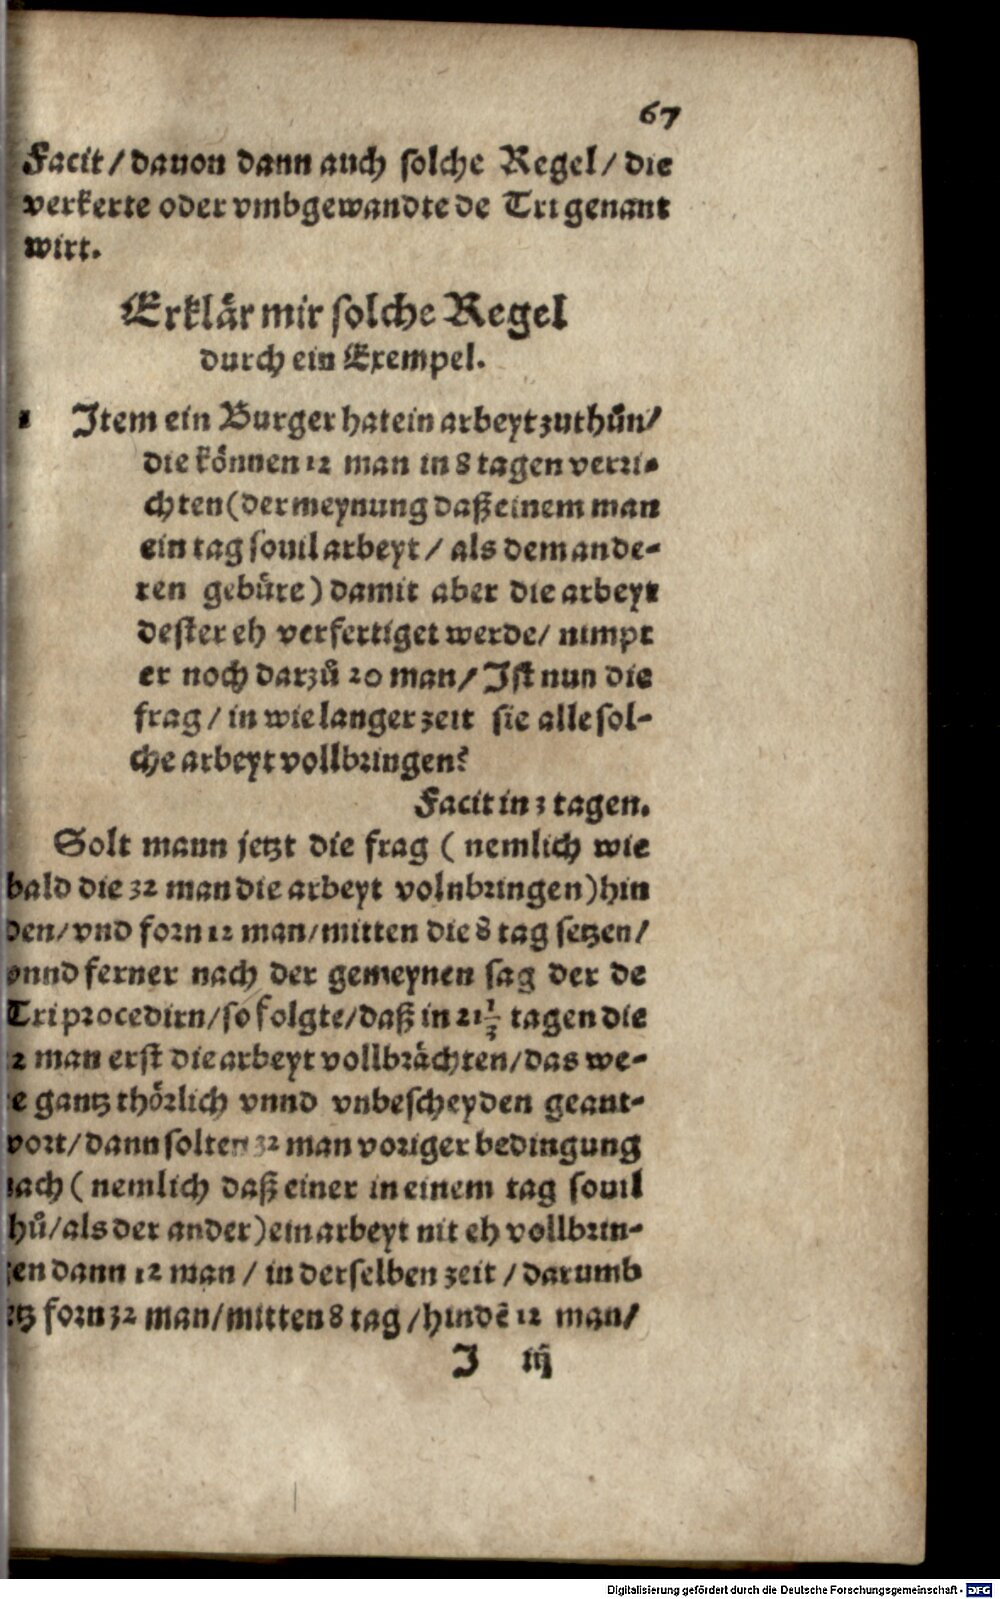 67
Facit/dauon dann auch solche Regel/die
verkerte oder vmbgewandte de Tri genant
wirt.
Erklår mir solche Regel
durch ein Exempel.
1 Item ein Burger hat ein arbeyt zuthůn/
die können 12 man in 8 tagen verri-
chten (der meynung daß einem man
ein tag souil arbeyt / als dem ande-
ren gebüre) damit aber die arbeyt
dester eh verfertiget werde/ nimpt
er noch darzů 20 man/ Ist nun die
frag / in wie langer zeit sie alle sol-
che arbeyt vollbringen?
Facit in 3 tagen.
Solt mann jetzt die frag ( nemlich wie
bald die 32 man die arbeyt volnbringen) hin
den/vnd forn 12 man/mitten die 8 tag setzen/
vnnd ferner nach der gemeynen sag der de
Tri procedirn/so folgte/daß in 21 1/3 tagen die
2 man erst die arbeyt vollbråchten/das we-
e gantz thörlich vnnd vnbescheyden geant-
wort/dann solten 32 man voriger bedingung
nach ( nemlich daß einer in einem tag souil
thů/als der ander) ein arbeyt nit eh vollbrin-
gen dann 12 man / in derselben zeit / darumb
etz forn 32 man/mitten 8 tag /hindē 12 man/
J iij
Digitalisierung gefördert durch die Deutsche Forschungsgemeinschaft - DFG